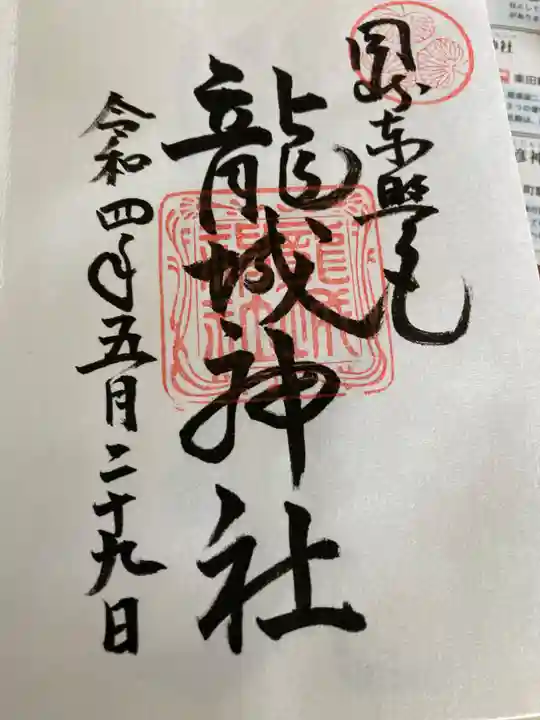 岡崎東照宮
龍城神社
令和四年五月二十九日
神社